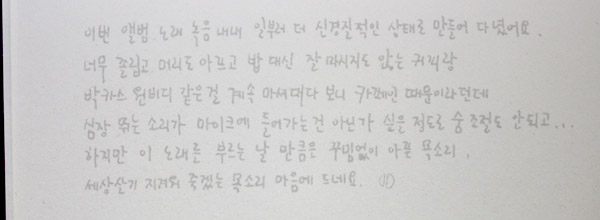 이번 앨범 노래 녹음 내내 일부러 더 신경질적인 상태로 만들어 다녔어요.
너무 졸립고 머리도 아프고 밥 대신 잘 마시지도 않는 커피랑
박카스 원비디 같은걸 계속 마셔대다 보니 카페인 때문이라던데
심장 뛰는 소리가 마이크에 들어가는건 아닌가 싶을 정도로 숨 조절도 안되고...
하지만 이 노래를 부르는 날 만큼은 꾸밈없이 아픈 목소리,
세상살기 지겨워 죽겠는 목소리 마음에 드네요.